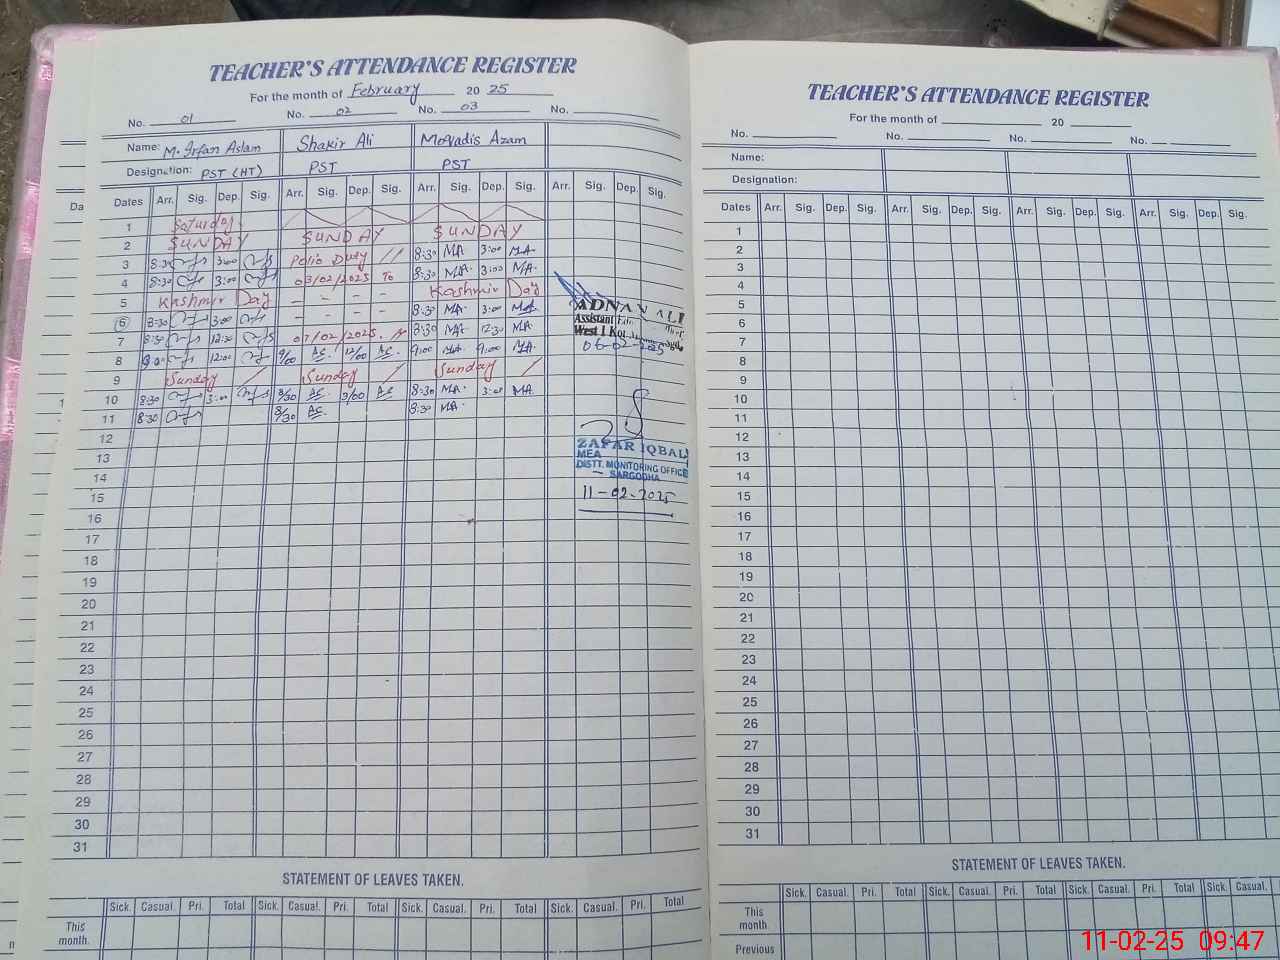 TEACHER'S ATTENDANCE REGISTER
For the month of February 20 25
No. 01 No. 02 No. 03 No.
Name: M. Irfan Aslam Shakir Ali Movadis Azam
Designation: PST (HT) PST PST
Dates Arr. Sig. Dep. Sig. Arr. Sig. Dep. Sig. Arr. Sig. Dep. Sig. Arr. Sig. Dep. Sig.
1 Saturday
2 SUNDAY SUNDAY SUNDAY
3 8:30 3:00 Polio Duty // 8:30 MA 3:00 MA
4 8:30 3:00 03/02/2025 To 8:30 MA. 3:00 MA.
5 Kashmir Day - - - - Kashmir Day
6 8:30 3:00 - - - - 8:30 MA. 3:00 MA
7 8:30 12:30 07/02/2025. 8:30 MA. 12:30 MA.
8 9:00 12:00 9/00 12/00 9:00 MA. MA.
9 Sunday / Sunday / Sunday /
10 8:30 3:00 8/30 3/00 8:30 MA. 3:00 MA
11 8:30 8/30 8:30 MA.
12
13
14
15
16
17
18
19
20
21
22
23
24
25
26
27
28
29
30
31
ADNAN ALI
Assistant
West I Kot
06-02-2025
ZAFAR IQBAL
MEA
DISTT. MONITORING OFFICE
SARGODHA
11-02-2025
STATEMENT OF LEAVES TAKEN.
Sick. Casual. Pri. Total Sick. Casual. Pri. Total Sick. Casual. Pri. Total Sick. Casual. Pri. Total
This
month.
TEACHER'S ATTENDANCE REGISTER
For the month of 20
No. No. No. No.
Name:
Designation:
Dates Arr. Sig. Dep. Sig. Arr. Sig. Dep. Sig. Arr. Sig. Dep. Sig. Arr. Sig. Dep. Sig.
1
2
3
4
5
6
7
8
9
10
11
12
13
14
15
16
17
18
19
20
21
22
23
24
25
26
27
28
29
30
31
STATEMENT OF LEAVES TAKEN.
Sick. Casual. Pri. Total Sick. Casual. Pri. Total Sick. Casual. Pri. Total Sick. Casual.
This
month.
Previous
11-02-25 09:47